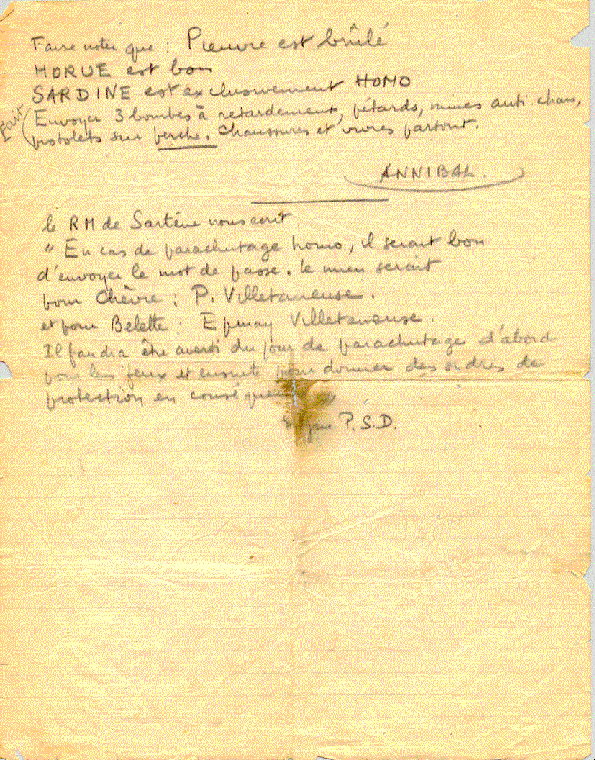 Faire noter que : Pieuvre est brûlé
MORUE est bon
SARDINE est exclusivement HOMO
Envoyer 3 bombes à retardement, pétards, mines anti chars,
pistolets sur perche. Chaussures et vivres partout.
ANNIBAL.
le RM de Sartène nous écrit
" En cas de parachutage homo, il serait bon
d'envoyer le mot de passe. le mien serait
pour Chèvre : P. Villetaneuse.
et pour Belette : Epinay Villetaneuse.
Il faudra être averti du jour de parachutage d'abord
pour les feux et ensuite pour donner des ordres de
protection en conséquence
Signé P.S.D.